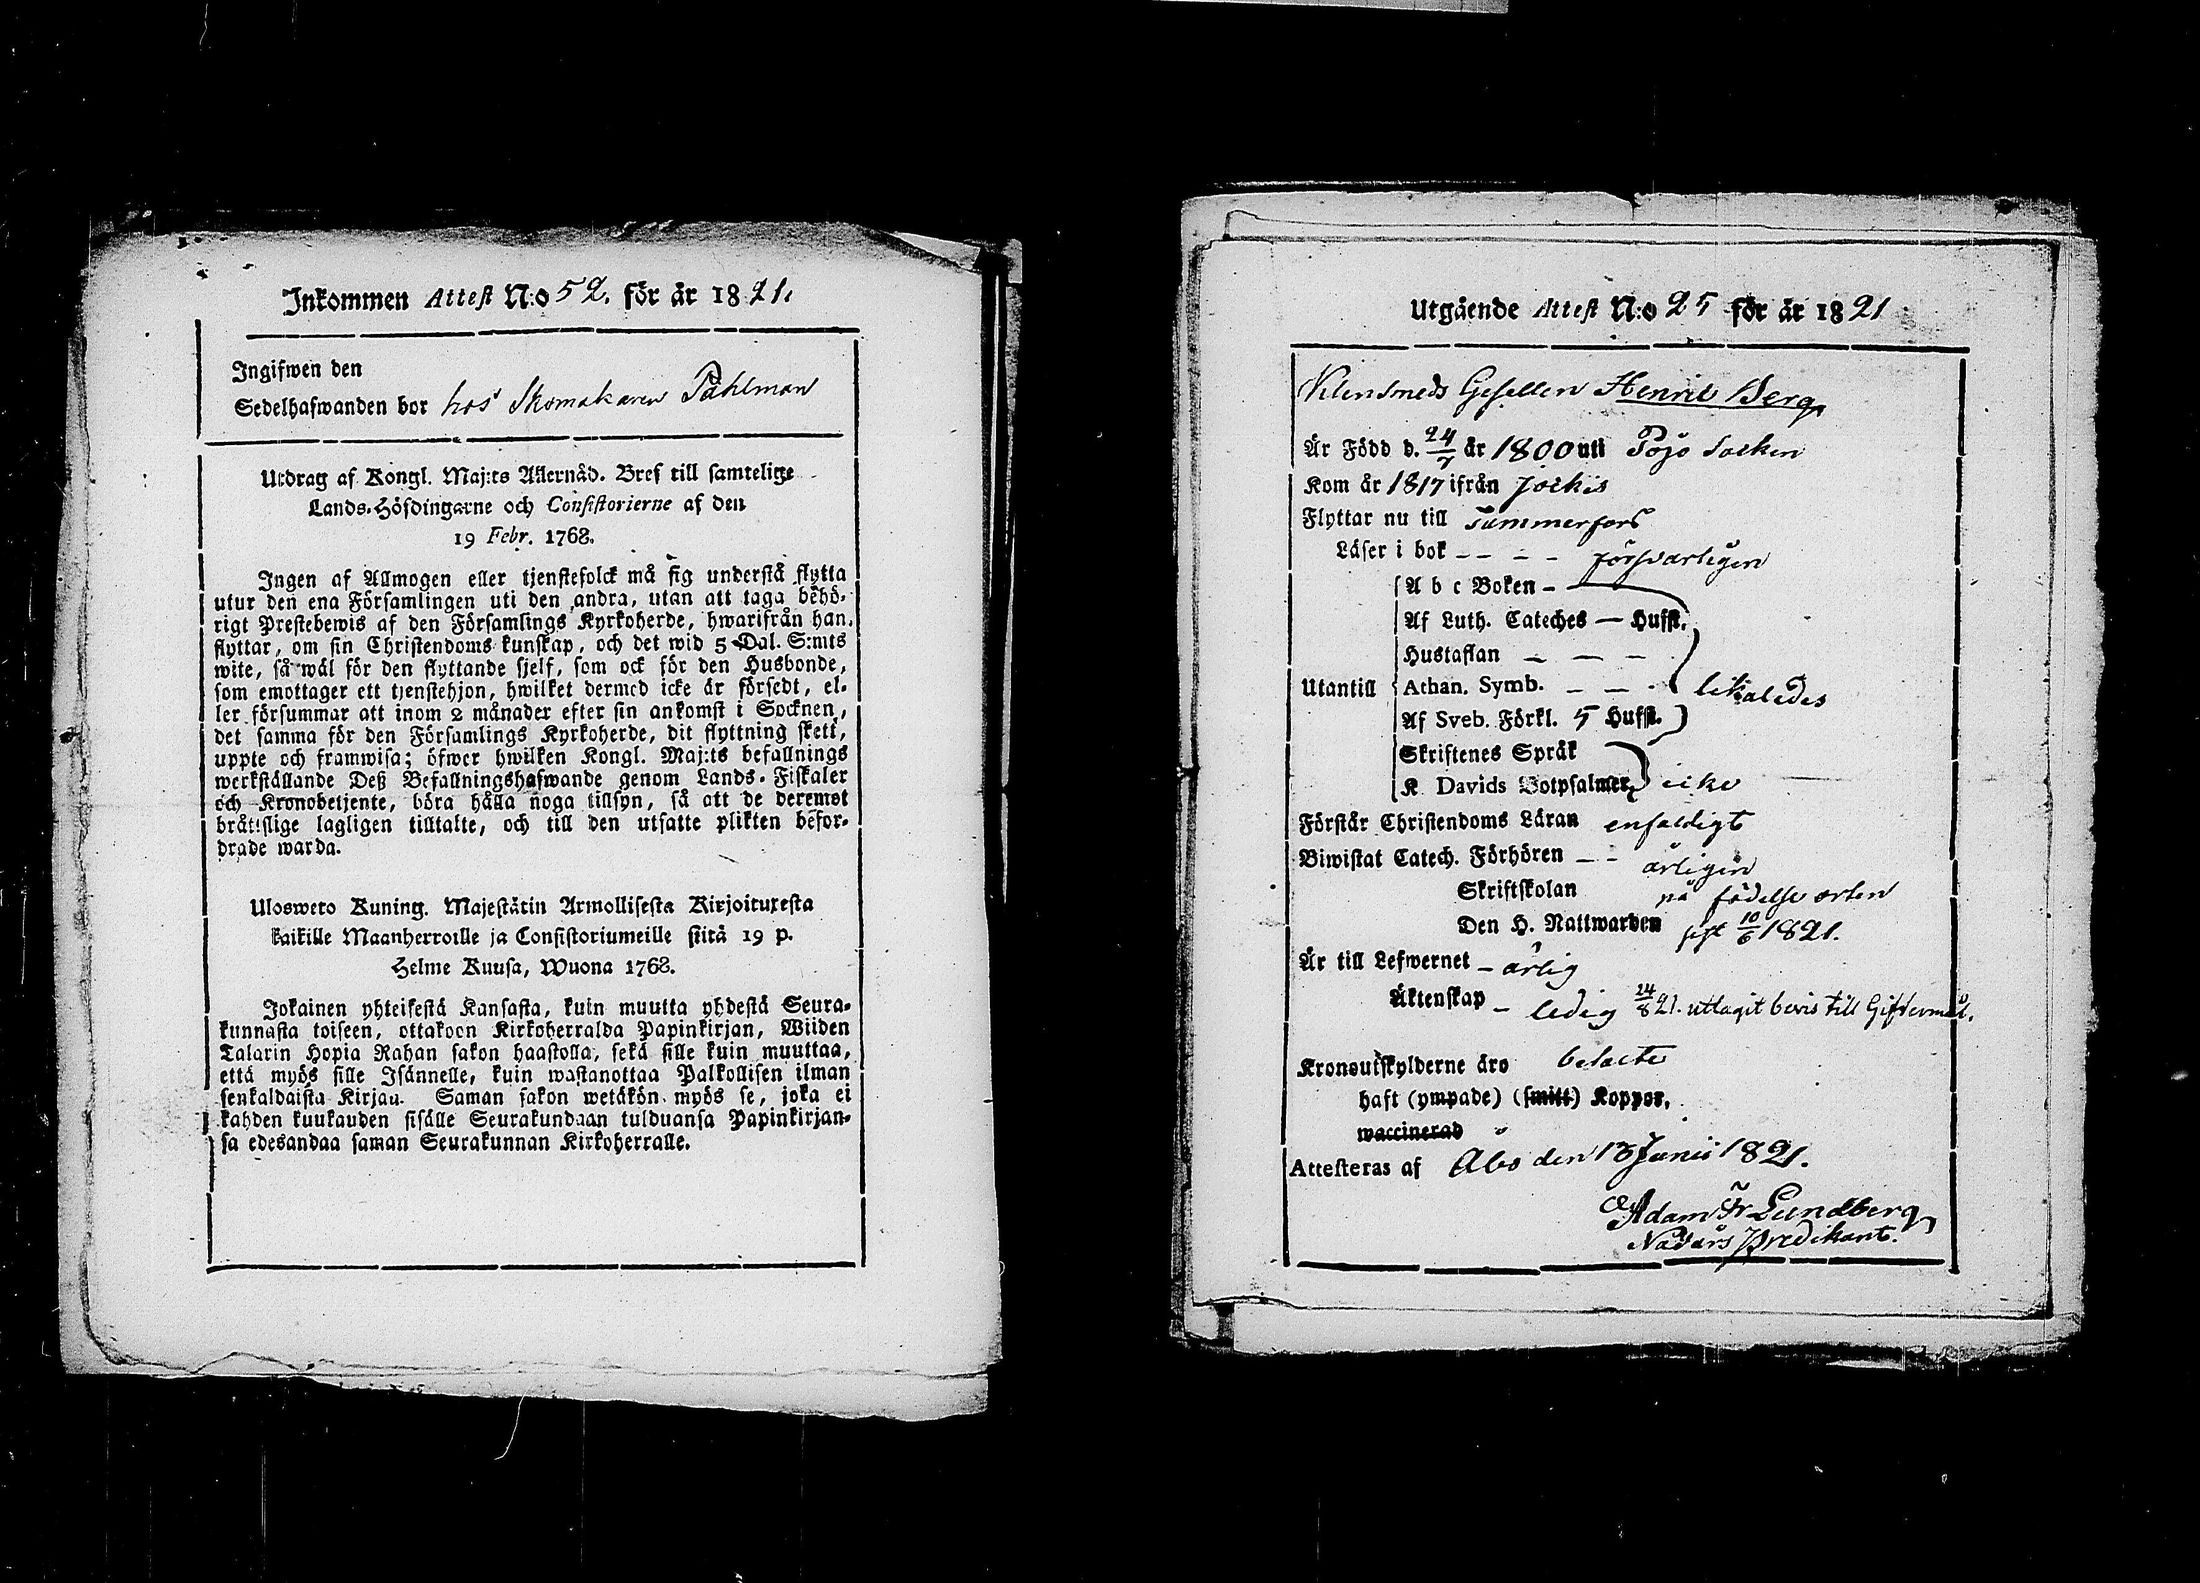 Inkommen Attest N:o 52. för år 1821.
Ingifwen den
Sedelhafwanden bor hos Skomakaren Påhlman
Utdrag af Kongl. Maj:ts Allernåd. Bref till samtelige
Lands-Höfdingarne och Consistorierne af den
19 Febr. 1768.
Ingen af Allmogen eller tjenstefolck må sig understå flytta
utur den ena Församlingen uti den andra, utan att taga behö-
rigt Prestebewis af den Församlings Kyrkoherde, hwarifrån han
flyttar, om sin Christendoms kunskap, och det wid 5 Dal. S:mts
wite, så wäl för den flyttande sjelf, som ock för den Husbonde,
som emottager ett tjenstehjon, hwilket dermed icke är försedt, el-
ler försummar att inom 2 månader efter sin ankomst i Socknen,
det samma för den Församlings Kyrkoherde, dit flyttning skett,
uppte och framwisa; öfwer hwilken Kongl. Maj:ts befallnings
werkställande Deß Befallningshafwande genom Lands-Fiskaler
och Kronobetjente, böra hålla noga tillsyn, så att de deremot
bråttslige lagligen tilltalte, och till den utsatte plikten befor-
drade warda.
Ulosweto Kuning. Majestätin Armollisesta Kirjoituxesta
kaikille Maanherroille ja Consistoriumeille siitä 19 p.
Helme Kuusa, Wuona 1768.
Jokainen yhteisestä Kansasta, kuin muutta yhdestä Seura-
kunnasta toiseen, ottakoon Kirkoherralda Papinkirjan, Wiiden
Talarin Hopia Rahan sakon haastolla, sekä sille kuin muuttaa,
että myös sille Isännelle, kuin wastanottaa Palkollisen ilman
senkaldaista Kirjau. Saman sakon wetäkön myös se, joka ei
kahden kuukauden sisälle Seurakundaan tulduansa Papinkirjan-
sa edesandaa saman Seurakunnan Kirkoherralle.
Utgående Attest N:o 25 för år 1821
Klensmeds Gesellen Henric Berg
Är Född d. 24/7 år 1800 uti Pojo Socken
Kom år 1817 ifrån Jockis
Flyttar nu till Tammerfors
Läser i bok - - - - försvarligen
A b c Boken -
Af Luth. Cateches — Hufst.
Hustaflan - - -
Utantill Athan. Symb. - - - likaledes
Af Sveb. Förkl. 5 Hufst.
Skriftenes Språk
K. Davids Botpsalmer icke
Förstår Christendoms Läran enfaldigt
Biwistat Catech. Förhören - - årligen
Skriftskolan på födelse orten
Den H. Nattwarden sist 10/6 1821.
Är till Lefwernet - ärlig
Äktenskap - ledig 24/8 21. uttagit bevis till Giftermål.
Kronoutskylderne äro betalte
haft (ympade) (smitt) Koppor,
waccinerad
Attesteras af Åbo den 13 Junii 1821.
Adam Fr Lundberg
Nådårs Predikant.